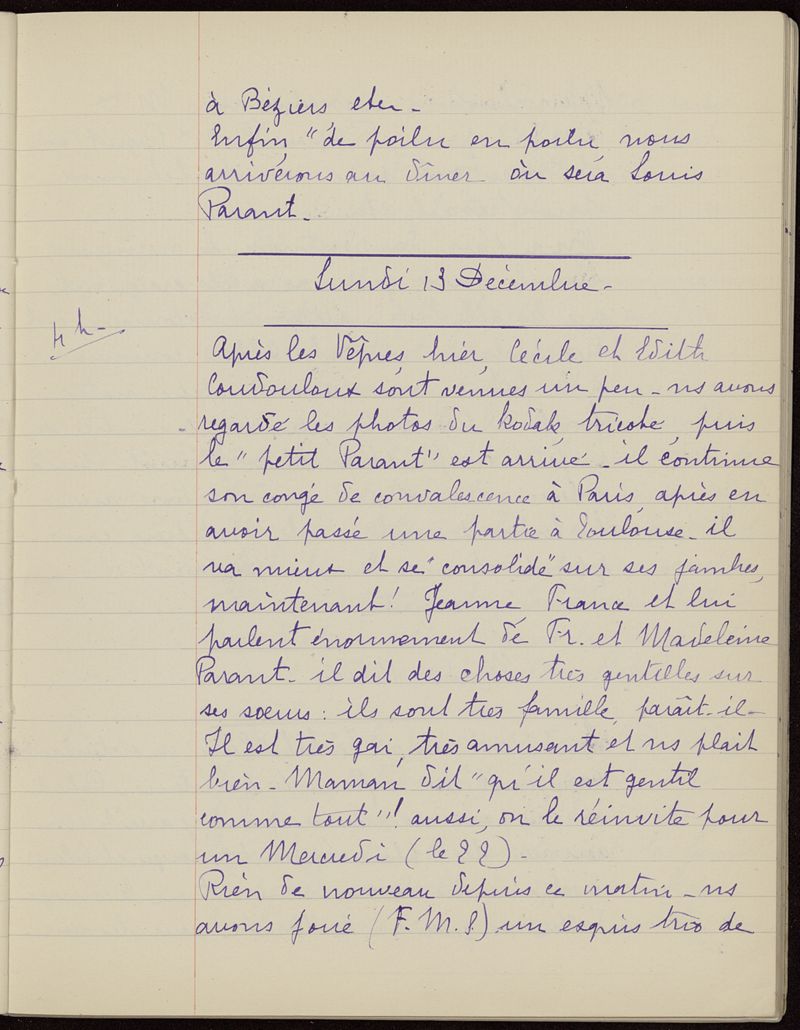 à Béziers etc..
Enfin, "de poilu en poilu, nous
arriverons au dîner où sera Louis
Parant.
Lundi 13 Décembre.
4 h.
Après les Vêpres, hier, Cécile et Edith
Coudouloux sont venues un peu. ns avons
regardé les photos du kodak, tricoté, puis
le "petit Parant" est arrivé. il continue
son congé de convalescence à Paris, après en
avoir passé une partie à Toulouse. il
va mieux et se "consolide" sur ses jambes,
maintenant! Jeanne, France et lui
parlent énormément de Fr. et Madeleine
Parant. il dit des choses très gentilles sur
ses sœurs : ils sont très famille, paraît-il.
Il est très gai, très amusant et ns plait
bien. Maman dit "qu'il est gentil
comme tout"! aussi, on le réinvite pour
un Mercredi (le 22).
Rien de nouveau depuis ce matin. ns
avons joué (F. M. S.) un exquis trio de